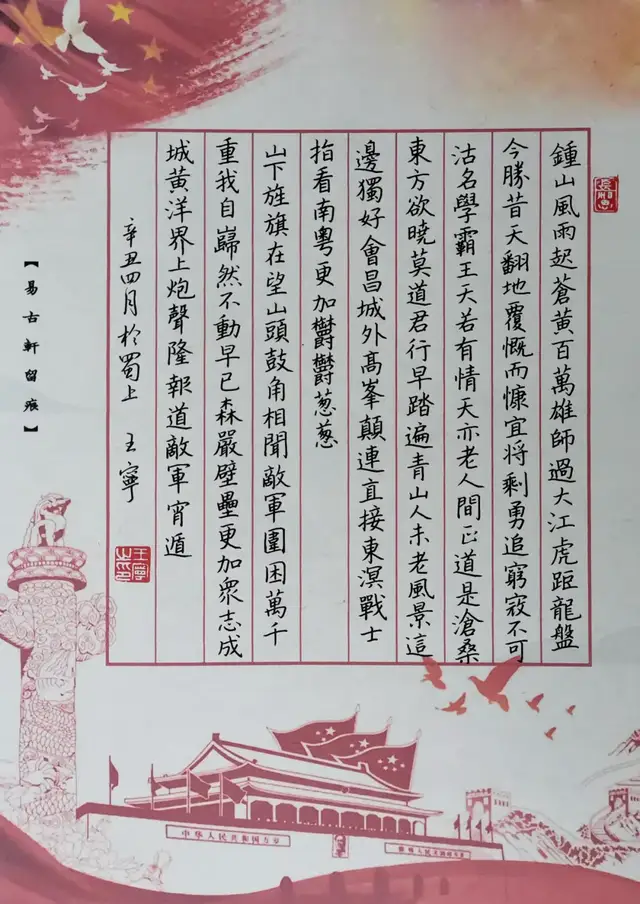 鍾山風雨起蒼黄百萬雄師過大江虎距龍盤
今勝昔天翻地覆慨而慷宜將剩勇追窮寇不可
沽名學霸王天若有情天亦老人間正道是滄桑
東方欲曉莫道君行早踏遍青山人未老風景這
邊獨好會昌城外高峯顛連直接東溟戰士
指看南粵更加鬱鬱葱葱
山下旌旗在望山頭鼓角相聞敵軍圍困萬千
重我自巋然不動早已森嚴壁壘更加衆志成
城黄洋界上炮聲隆報道敵軍宵遁
辛丑四月於蜀上 王寧
王寧之印
【易古軒留痕】
中华人民共和国万岁